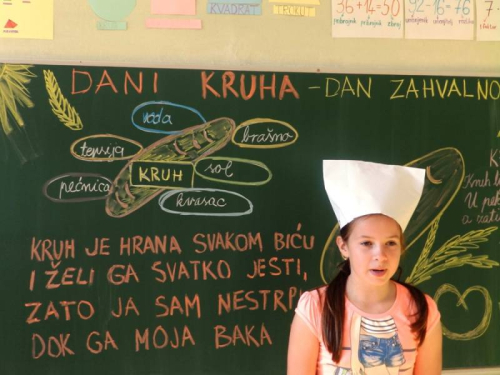 KVADRAT
36+14=50
92-16=76
DANI KRUHA - DAN ZAHVALNO
voda
brašno
tepsija
sol
KRUH
pećnica
kvasac
KRUH JE HRANA SVAKOM BIĆU
I ŽELI GA SVATKO JESTI,
ZATO JA SAM NESTRP
DOK GA MOJA BAKA
Kruh
U
a